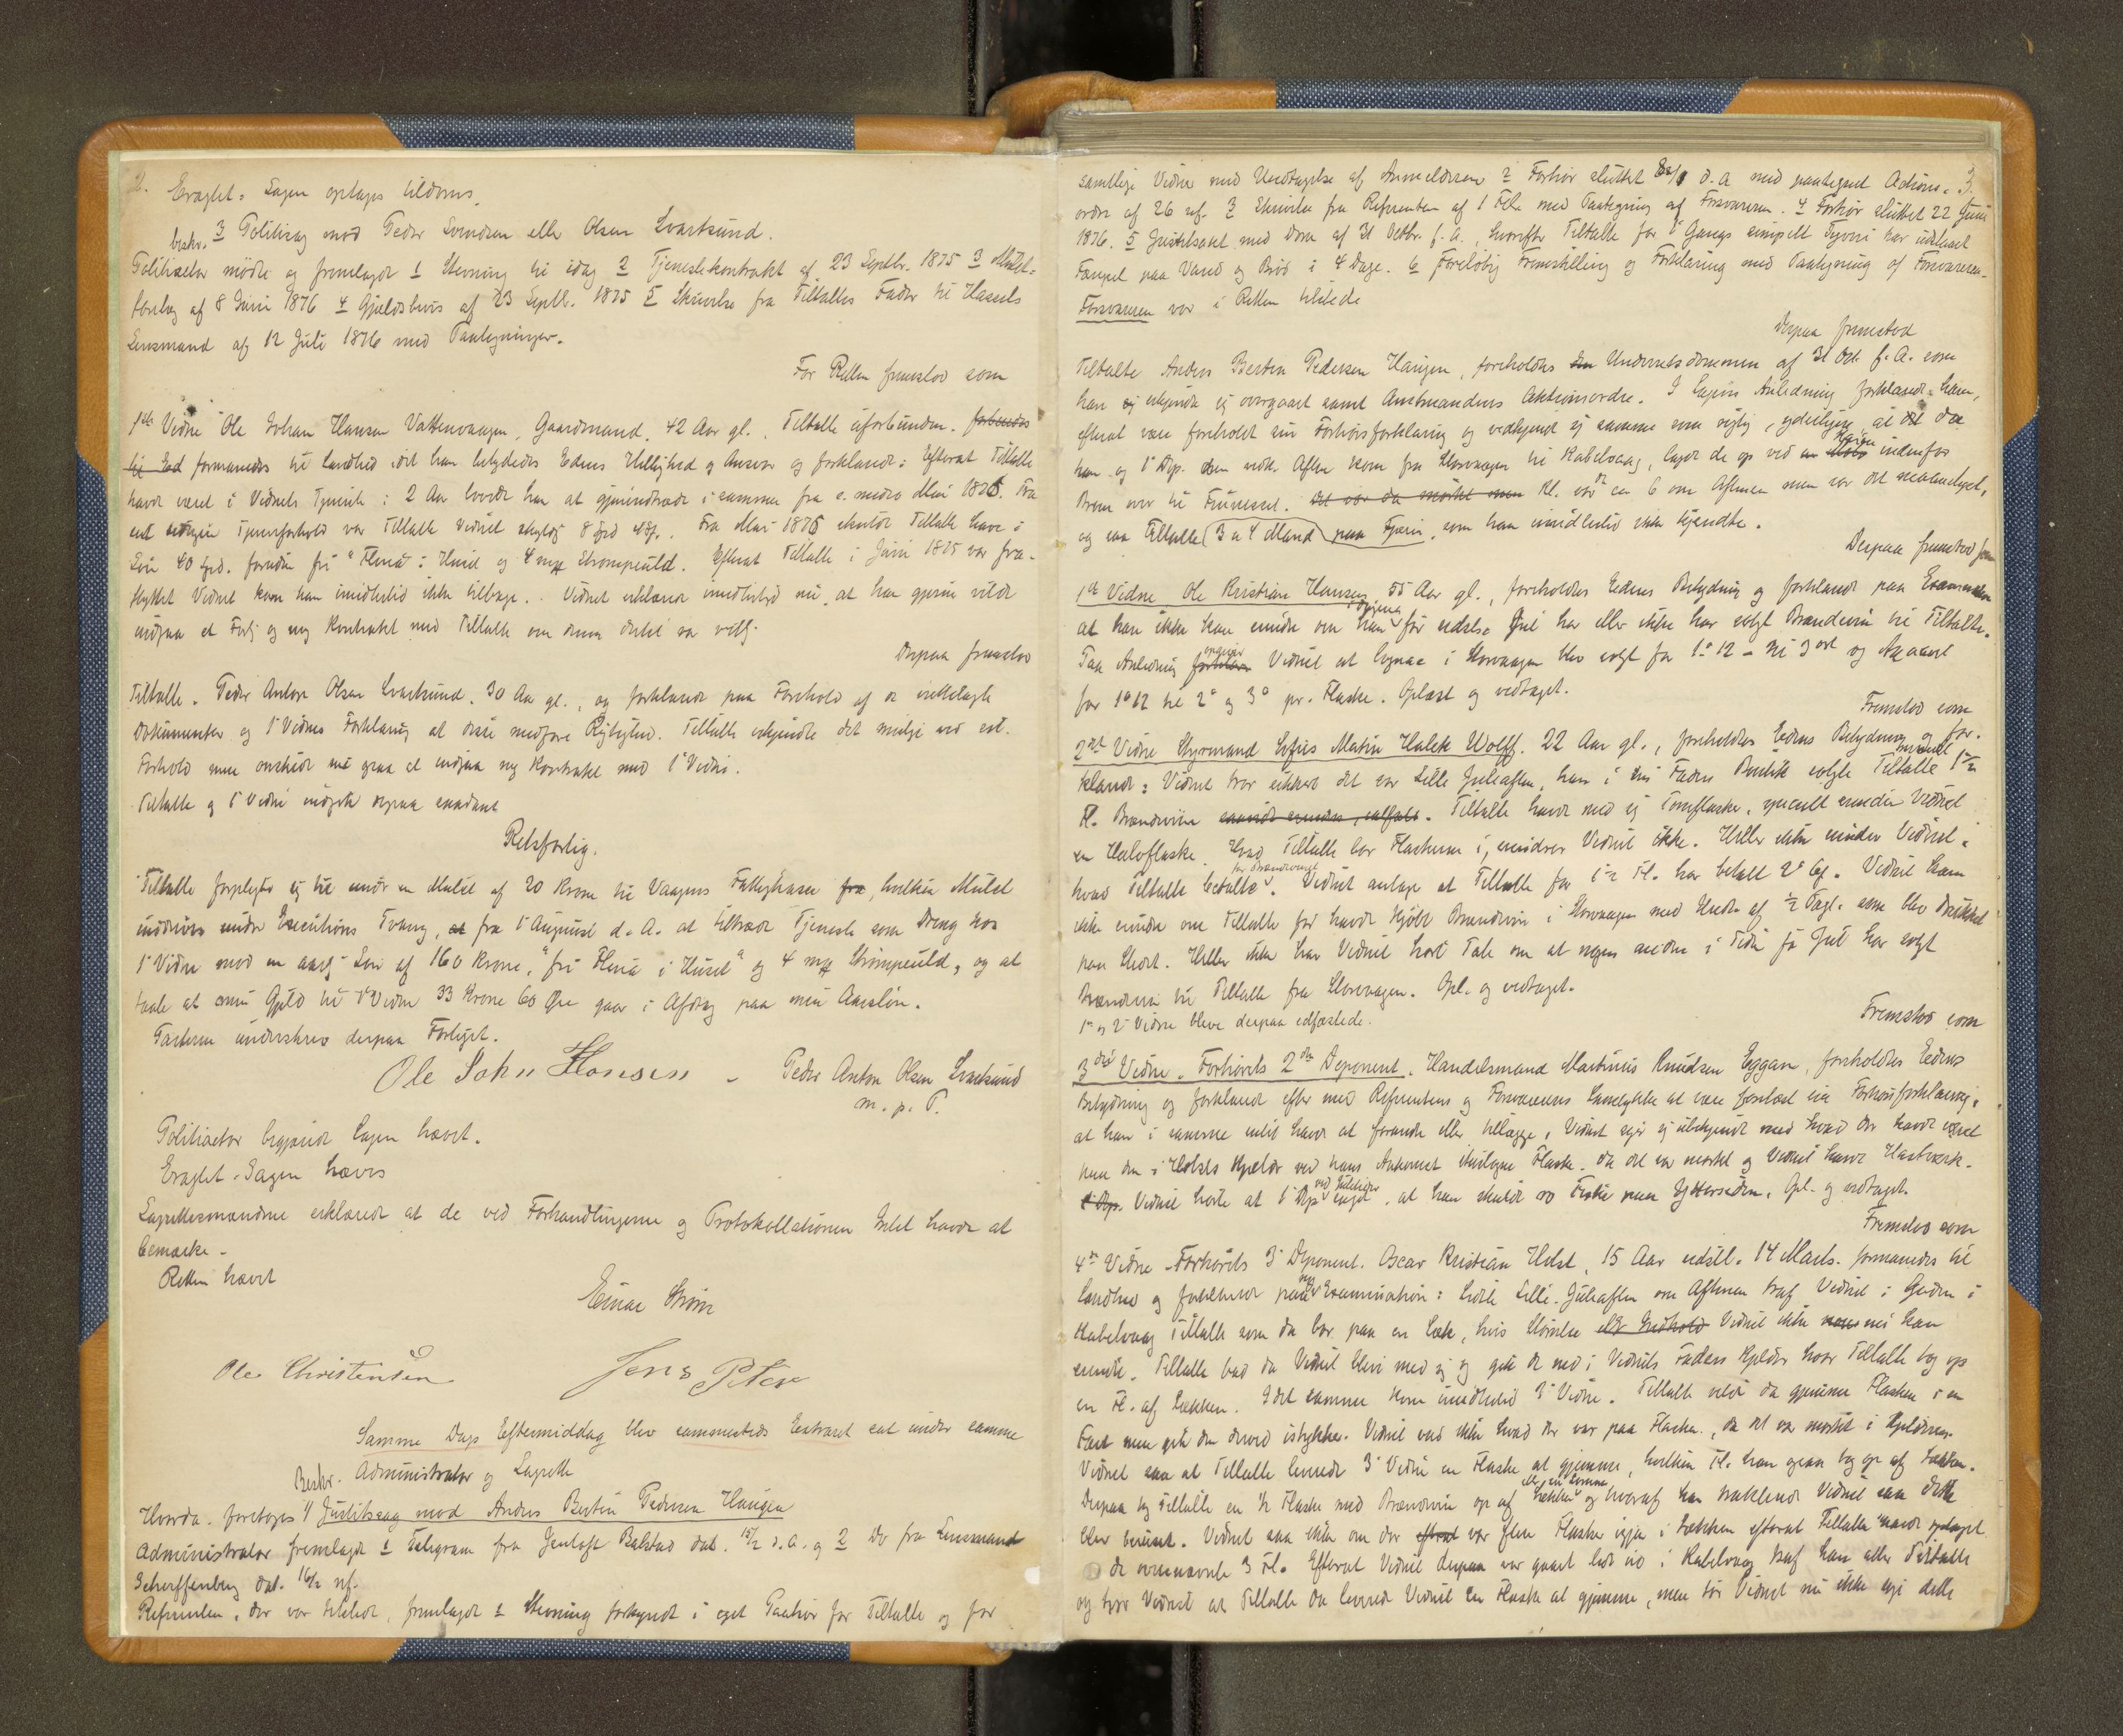 2.
Eragtet: Sagen optages tildoms.
beskr. 3 Politisag mod Peder Svendsen eller Olsen Svartsund.
Politiactor mødte og fremlagde 1 Stevning til idag 2 Tjenestekontrakt af 23 Septbr. 1875 3 Mulct-
forelæg af 8 Juni 1876 4 Gjeldsbevis af 23 Septb. 1875 5 Skrivelse fra Tiltaltes Fader til Hassels
Lensmand af 12 Juli 1876 med Paategninger.
For Retten fremstod som
1ste Vidne Ole Johan Hansen Vattenvaagen, Gaardmand, 42 Aar gl., Tiltalte uforbunden.
til Ed formanedes til Sandhed idet han betydedes Edens Hellighed og Ansvar og forklarede: Efterat Tiltalte
havde været i Vidnets Tjeneste i 2 Aar lovede han at gjenindtræde i samme fra s. medio Mai 1875. Fra
sit tidligere Tjenerforhold var Tiltalte Vidnet skyldig 8 Spd. Fra Mai 1875 skulde Tiltalte have i
Løn 40 Spd. foruden fri "Flenà" i Huset og 4 Strømpeuld. Efterat Tiltalte i Juni 1875 var fra-
flyttet Vidnet kom han imidlertid ikke tilbage. Vidnet erklærede imidlertid nu, at han gjerne vilde
indgaa et Forlig og ny Kontrakt med Tiltalte om denne dertil var villig.
Derpaa fremstod
Tiltalte. Peder Anton Olsen Svartsund, 30 Aar gl., og forklarede paa Forehold af de irettelagte
Dokumenter og 1ste Vidnes Forklaring at disse medføre Rigtighed. Tiltalte erkjendte det urigtige ved sit
Forhold men ønskede nu at indgaa ny Kontrakt med 1ste Vidne.
Tiltalte og 1ste Vidne indgik derpaa saadant
Retsforlig.
Tiltalte forpligter sig til under en Mulct af 20 Krone til Vaagens Fattigkasse fra, hvilken Mulct
inddrives under Executions Tvang, at fra 1 August d. A. at tiltræde Tjeneste som Dreng hos
1ste Vidne mod en aarlig Løn af 160 Krone, "fri Flenà i Huset" og 4 Strømpeuld, og at
taale at min Gjeld til 1ste Vidne 33 Krone 60 Øre gaar i Afdrag paa min Aarsløn.
Parterne underskrev derpaa Forliget.
Ole John Hansen - Peder Anton Olsen Svartsund
m. p. P.
Politiactor begjærede Sagen hævet.
Eragtet: Sagen hæves
Lagrettesmændene erklærede at de ved Forhandlingerne og Protokollationen Intet havde at
bemærke -
Retten hævet
Einar Strøm
Ole Christensen Jens Peter
Samme Dags Eftermiddag blev sammesteds Extraret sat under samme
Administrator og Lagrette
Beskr.
Hvorda foretoges 1/ Justitssag mod Anders Bertin Pedersen Haugen
Administrator fremlagde 1 Telegram fra Jentoft Balstad dat. 15/2 d. A. og 2 Do fra Lensmand
Scharffenberg dat. 16/2 nf.
Referenten, der var tilstede, fremlagde 1 Stevning forkyndt i eget Paahør for Tiltalte og for
3.
samtlige Vidner med Undtagelse af Anmelderen 2 Forhør sluttet d. A med paategnet Actions-
ordre af 26 nf. 3 Skrivelse fra Referenten af 1 Feb. med Paategning af Forsvareren. 4 Forhør sluttet 22 Juni
1876. 5 Justitsact med Dom af 31 Octbr. f. A., hvorefter Tiltalte for 1 Gangs simpelt Tyveri har udstaaet
Fængsel paa Vand og Brød i 4 Dage. 6 Foreløbig Fremstilling og Forklaring med Paategning af Forsvareren.
Forsvareren var i Retten tilstede
Derpaa fremstod
Tiltalte Anders Bertin Pedersen Haugen, foreholdtes Underretsdommen af 31 Oct. f. A. som
han erkjendte sig overgaaet samt Amtmandens Aktionsordre. I Sagens Anledning forklarede han,
efterat være foreholdt sin Forhørsforklaring og vedkjendt sig samme som rigtig, yderligere, at da
han og 1 Dep. den nævnte Aften kom fra Storvaagen til Kabelvaag, lagde de op ved indenfor
Broen over til Finneset. det var da mørkt men Kl. var da ca 6 om Aftenen men var det maanelyst,
og saa Tiltalte 3 a 4 Mand paa Fjæren, som han imidlertid ikke kjendte.
Derpaa fremstod som
1ste Vidne Ole Kristian Hansen, 55 Aar gl., foreholdtes Eedens Betydning og forklarede paa Examination
at han ikke kan erindre om han i Dagene før sidste Jul har eller ikke har solgt Brændevin til Tiltalte.
Paa Anledning opgiver Vidnet at Cognac i Storvaagen blev solgt for 1.12 - til 3 ort og Akvavit
for 1.12 til 2 og 3 pr. Flaske. Oplæst og vedtaget.
Fremstod som
2det Vidne Styrmand Sofus Martin Halck Wolff, 22 Aar gl., foreholdtes Eedens Betydning og for-
klarede: Vidnet tror sikkert det var Lille Juleaften, han i sin Faders Butik solgte Tiltalte 1½
Fl. Brændevin. Tiltalte havde med sig Tomflasker, specielt erindrer Vidnet
en Halvflaske. Hvad Tiltalte bar Flaskerne i, erindrer Vidnet ikke. Heller ikke erindrer Vidnet
hvad Tiltalte betalte for Brændevinet. Vidnet antager at Tiltalte for 1½ Fl. har betalt 2. Vidnet kan
ikke erindre om Tiltalte før havde kjøbt Brændevin i Storvaagen med Undt. af ½ Pægl. som blev drukket
paa Stedet. Heller ikke har Vidnet hørt Tale om at nogen anden i Tiden før Jul har solgt
Brændevin til Tiltalte fra Storvaagen. Opl. og vedtaget.
1ste og 2det Vidne bleve derpaa edfæstede.
Fremstod som
3die Vidne. Forhørets 2den Deponent. Handelsmand Martinus Knudsen Eggan, foreholdtes Eedens
Betydning og forklarede efter med Referentens og Forsvarerens Samtykke at være forelæst sin Forhørsforklaring,
at han i samme intet havde at forandre eller tillægge. Vidnet siger sig ubekjendt med hvad der havde været
paa den i Holsts Kjælder ved hans Ankomst itugjorte Flaske, da det var mørkt og Vidnet havde Hastværk.
Vidnet hørte at 1 Dep. ved Juletider sagde, at han skulde ro Fiske paa Yttersiden. Opl. og vedtaget.
Fremstod som
4de Vidne - Forhørets 3 Deponent. Oscar Kristian Holst, 15 Aar sidstl. 14 Marts. formanedes til
Sandhed og forklarede paa Examination: Sidste Lille Juleaften om Aftenen traf Vidnet i Gaden i
Kabelvaag Tiltalte som da bar paa en Sæk, hvis Størrelse eller Indhold Vidnet ikke nu kan
erindre. Tiltalte bad da Vidnet blive med sig og gik de ned i Vidnets Faders Kjelder hvor Tiltalte tog op
en Fl. af Sækken. I det samme kom imidlertid 3 Vidne. Tiltalte vilde da gjemme Flasken i en
Fart men gik den derved istykker. Vidnet ved ikke hvad der var paa Flasken, da det var mørkt i Kjelderen.
Vidnet saa at Tiltalte leverede 3 Vidne en Flaske at gjemme, hvilken Fl. han ogsaa tog op af Sækken.
Derpaa tog Tiltalte en ½ Flaske med Brændevin op af Sækken eller en Lomme og hvoraf han trakterede Vidnet saa dette
blev beruset. Vidnet saa ikke om der var flere Flasker igjen i Sækken efterat Tiltalte havde optaget
de ovennævnte 3 Fl. Efterat Vidnet derpaa var gaaet lidt ud i Kabelvaag traf han atter Tiltalte
og tror Vidnet at Tiltalte da leverede Vidnet en Flaske at gjemme, men tør Vidnet nu ikke sige dette